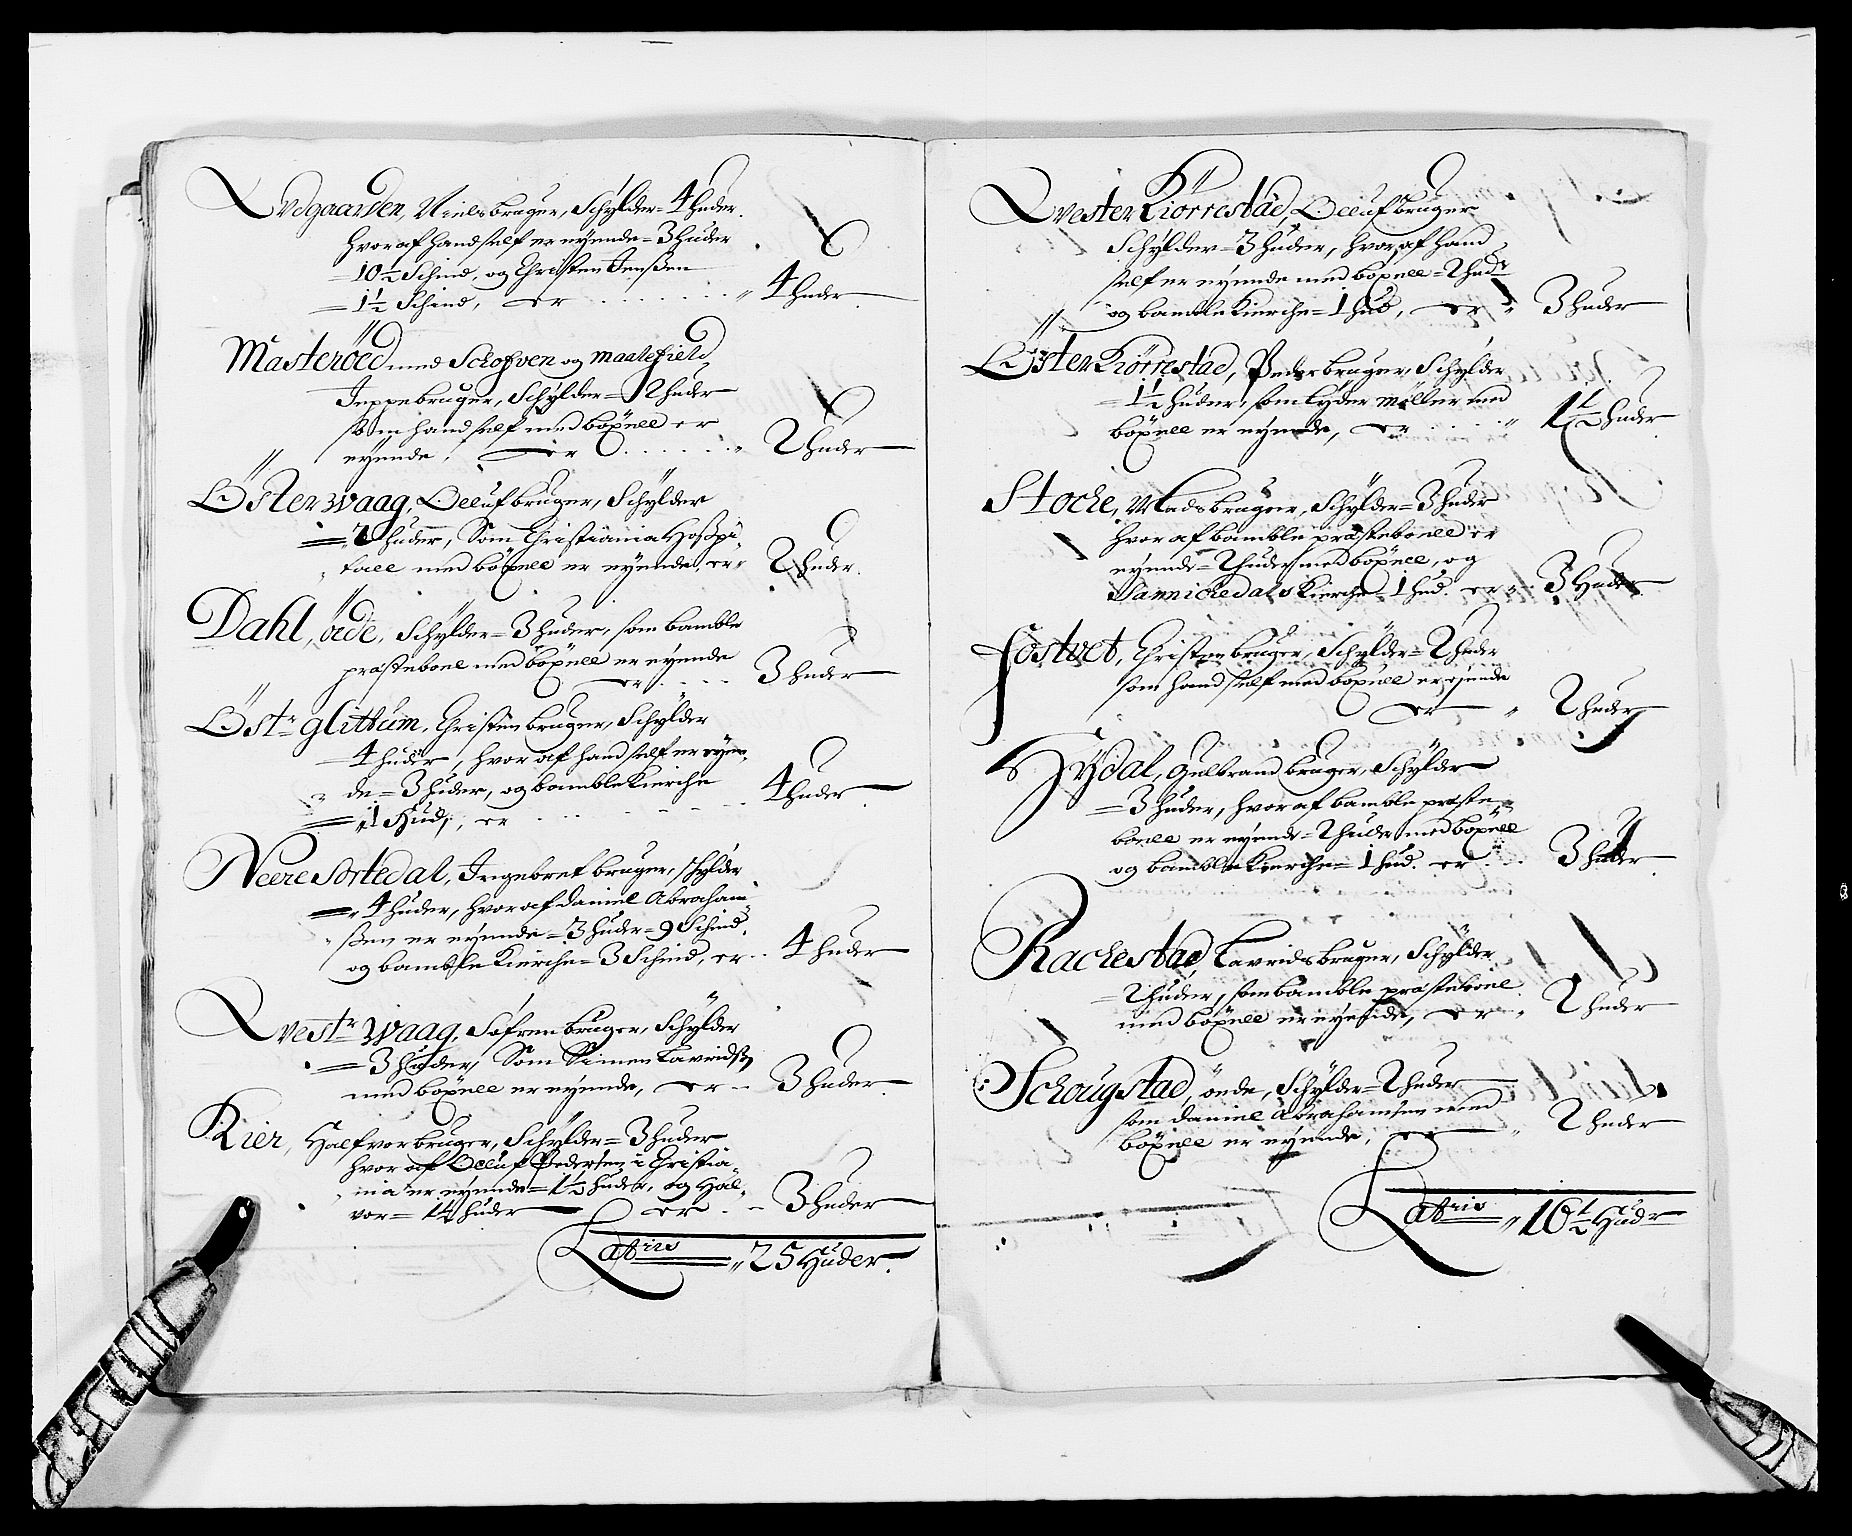 Wdgaarden, Niels bruger, Schÿlder = 4 huder
hvoraf hand self er eyende = 3 huder
= 10½ Schind, og Christen Jenßen
= 1½ Schind, er . . . . . . . „ 4 huder
Masteröed med Schofven og maalefield,
Jeppe bruger, Schÿlder = 2 huder
som hand self med böxell er
eyende, er . . . . . „ 2 huder
Öster waag, Olluf bruger, Schÿlder
= 2 huder, Som Christiania Hoßpi-
tall med böxell er eyende, er „ 2 huder
Dahl, öde, Schÿlder = 3 huder, som bamble
præstebole med böxell er eyende
er . . . . 3 huder
Östr glittum, Christen bruger, Schÿlder
= 4 huder, hvoraf hand self er eyen-
de = 3 huder, og bamble Kierche
= 1 Hud, er . . . . . . 4 huder
Neere Sortedal, Ingebret bruger, schÿlder
= 4 huder, hvoraf daniel Abraham-
ßen er eyende = 3 huder = 9 Schind,
og bamble Kierche = 3 Schind, er . . 4 huder
Westr waag, Søfren bruger, Schÿlder
= 3 huder, Som Simen Lavridß
med böxell er eyende, er — 3 huder
Kier, Halfvor bruger, Schÿlder = 3 huder
hvoraf Olluf Pedersen i Christia-
nia er eyende = 1½ huder, og Hal-
vor = 1½ huder er . — 3 huder
Latris „ 25 Huder.
Wester Kiörrestad, Olluf bruger
Schÿlder = 3 huder, hvoraf hand
self er eyende med böxell = 2 hudr
og bamble Kierche = 1 hud, er „ 3 huder
Öster Kiörrestad, Peder bruger, Schÿlder
= 1½ huder, som Lyder möller med
böxell er eyende, er . . . . „ 1½ huder
Stocke, Mads bruger, Schÿlder = 3 huder
hvoraf bamble præstebolle er
eyende = 2 huder med böxell, og
Sannickedals Kierche = 1 hud. er „ 3 Huder
Fostvet, Christen bruger, Schÿlder = 2 huder
som hand self med böxell er eyende
er — „ 2 huder
Hÿdal, Gulbrand bruger, Schÿlder
= 3 huder, hvoraf bamble præste-
bolle er eyende = 2 huder med böxell
og bamble Kierche = 1 hud. er . . 3 huder
Rackestad, Lavrids bruger, Schÿlder
= 2 huder, som bamble præstebole
med böxell er eyende, er „ 2 huder
Schougstad, öede, Schÿlder = 2 huder
som daniel Abrahamsen med
böxell er eyende, er „ 2 huder
Latris „ 16½ Hudr